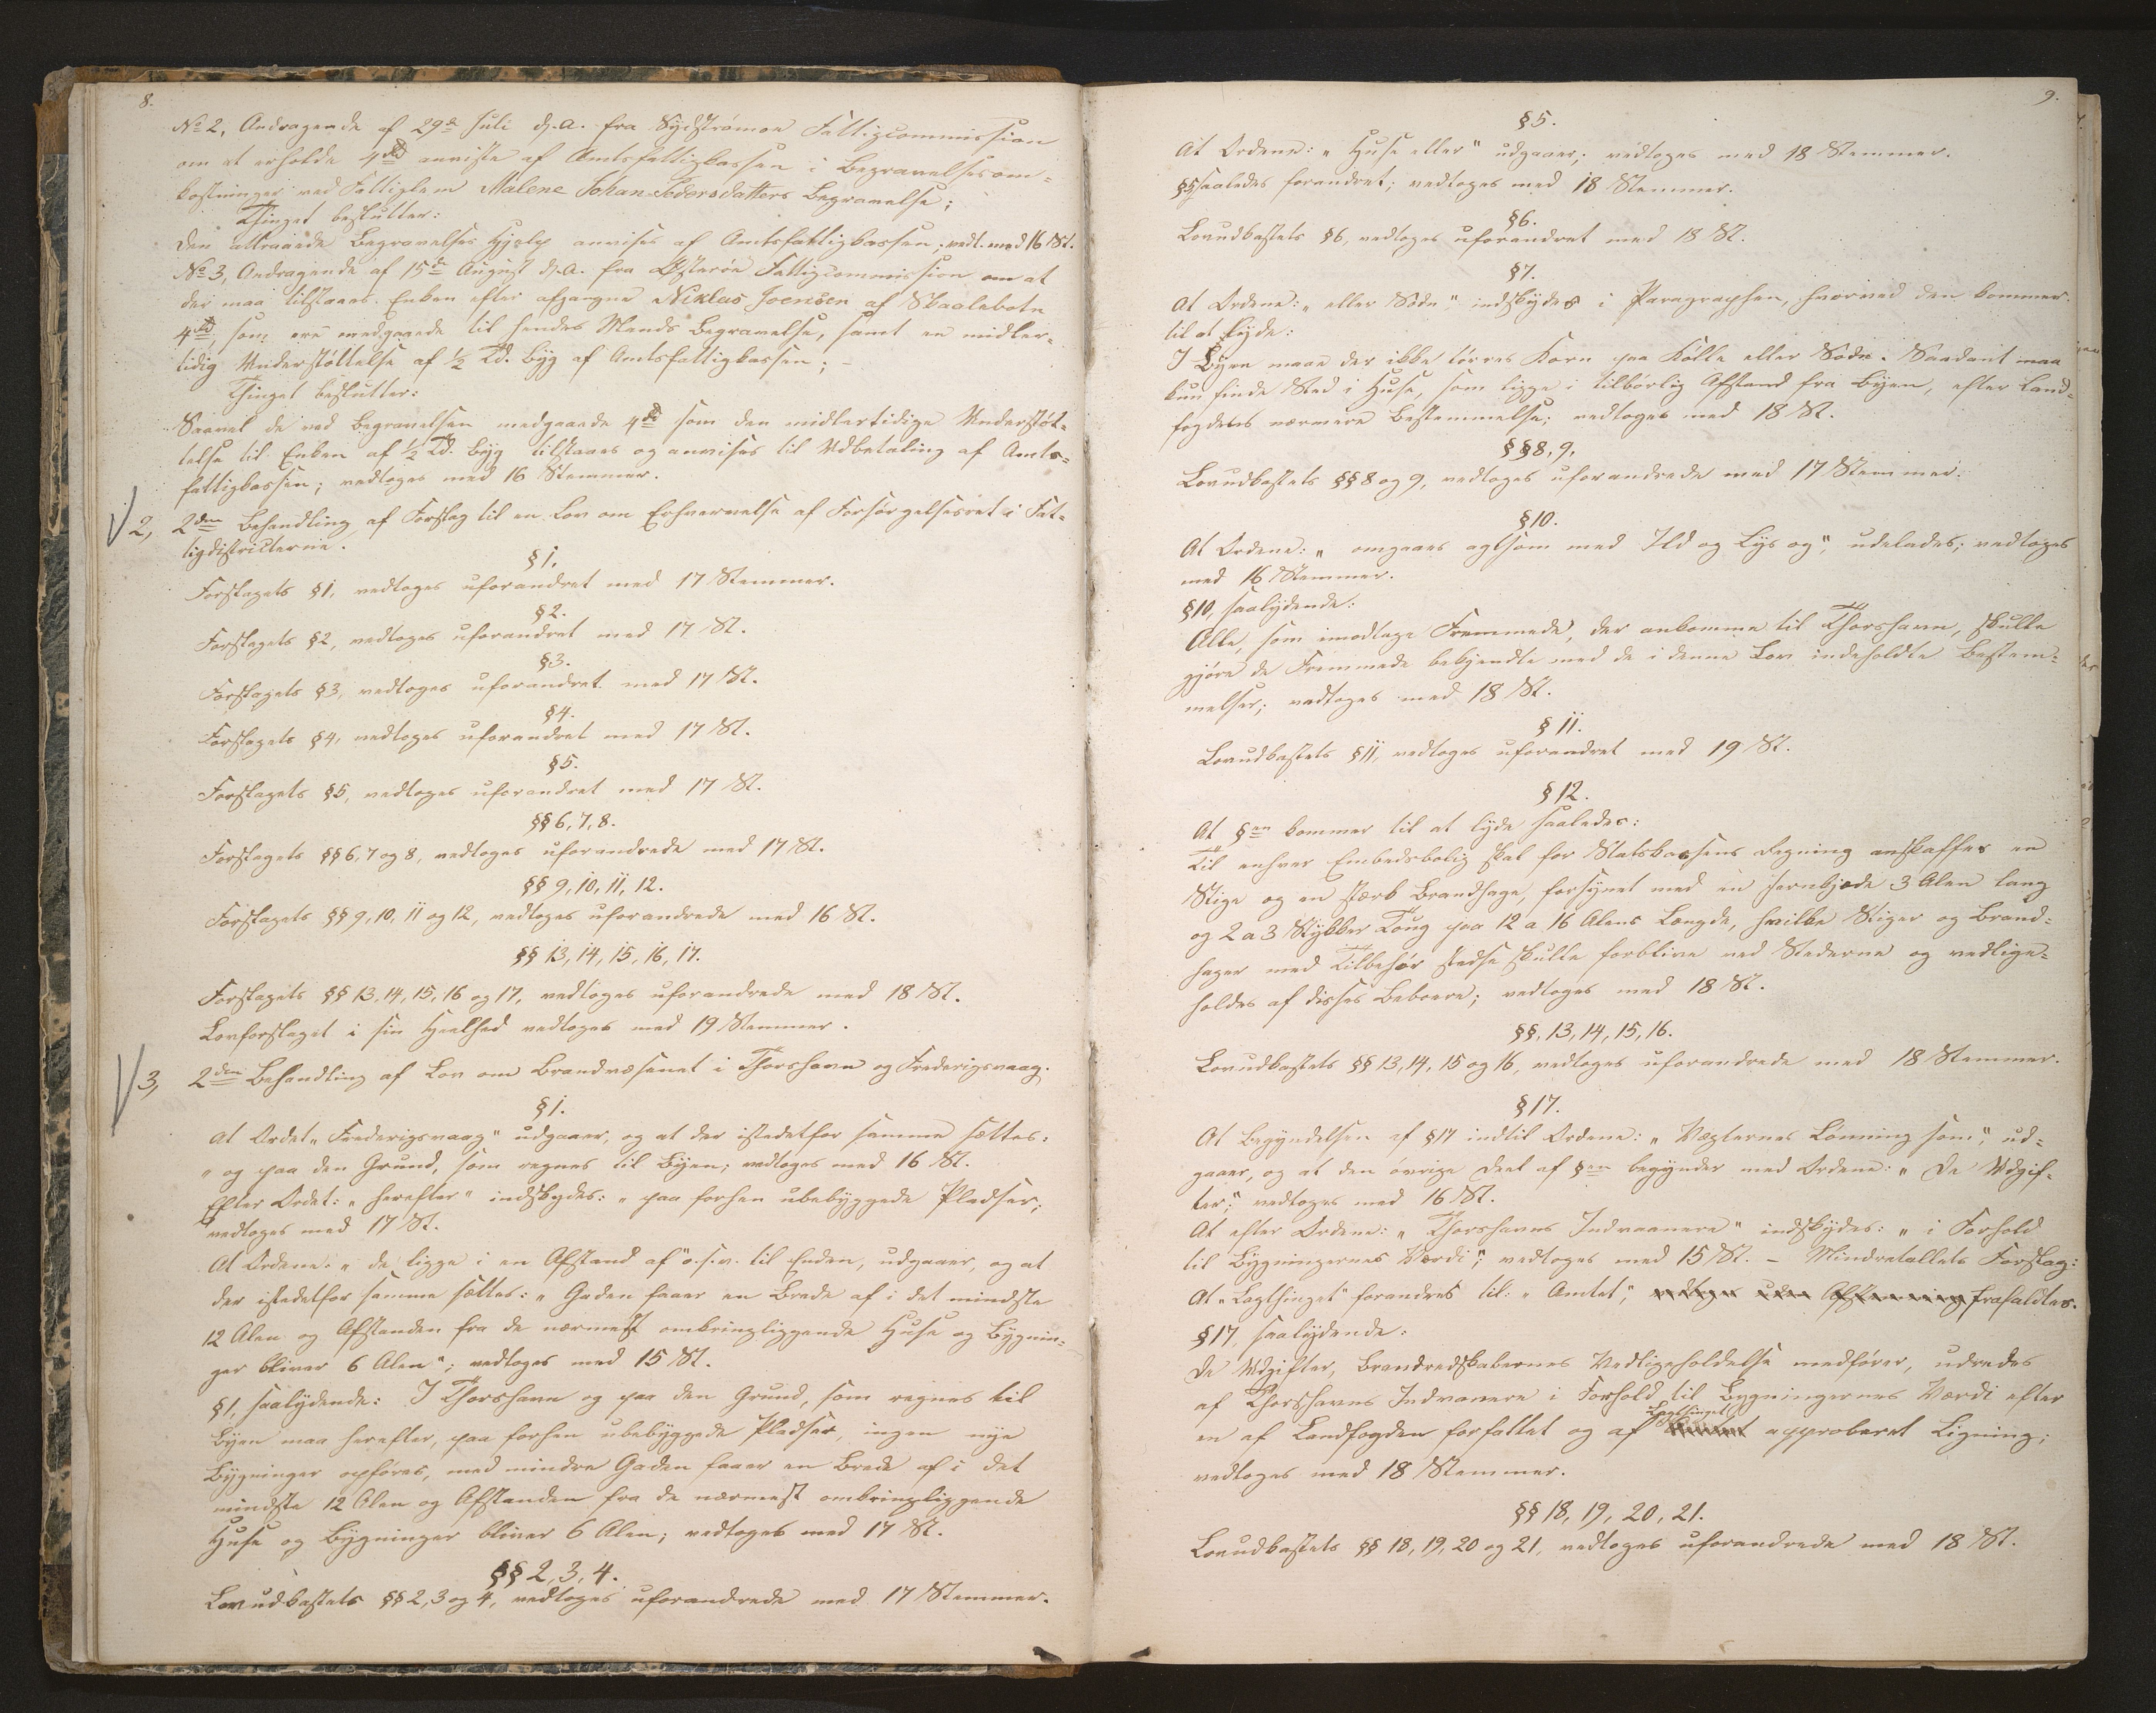 8.
No 2, Andragende af 29de Juli d.A. fra Sydstrømøe Fattigcommission
om at erholde 4 rd anviste af Amtsfattigkassen i Begravelsesom=
kostninger ved Fattiglem Malene Johan Pedersdatters Begravelse;
Thinget beslutter:
Den attraaede Begravelses Hjelp anvises af Amtsfattigkassen; vedt. med 16 St.
No 3, Andragende af 15de August d.A. fra Østerøe Fattigcommission om at
der maa tilstaaes Enken efter afgangne Niklas Joensen af Skaalebotn
4 rd, som ere medgaaede til hendes Mands Begravelse, samt en midler-
tidig Understøttelse af ½ Td. Byg af Amtsfattigkassen; -
Thinget beslutter:
Saavel de ved Begravelsen medgaaede 4 rd som den midlertidige Understøt-
telse til Enken af ½ Td. Byg tilstaaes og anvises til Udbetaling af Amts=
fattigkassen; vedtoges med 16 Stemmer.
2, 2den Behandling af Forslag til en Lov om Erhvervelse af Forsørgelsesret i Fat-
tigdistricterne.
§ 1.
Forslagets § 1, vedtoges uforandret med 17 Stemmer.
§ 2.
Forslagets § 2, vedtoges uforandret med 17 St.
§ 3.
Forslagets § 3, vedtoges uforandret med 17 St.
§ 4.
Forslagets § 4, vedtoges uforandret med 17 St.
§ 5.
Forslagets § 5, vedtoges uforandret med 17 St.
§§ 6, 7, 8.
Forslagets §§ 6, 7 og 8, vedtoges uforandrede med 17 St.
§§ 9, 10, 11, 12.
Forslagets §§ 9, 10, 11 og 12, vedtoges uforandrede med 16 St.
§§ 13, 14, 15, 16, 17.
Forslagets §§ 13, 14, 15, 16 og 17, vedtoges uforandrede med 18 St.
Lovforslaget i sin Heelhed vedtoges med 19 Stemmer.
3, 2den Behandling af Lov om Brandvæsenet i Thorshavn og Frederigsvaag.
§ 1.
At Ordet „Frederigsvaag“ udgaaer, og at der istedetfor samme sættes:
„og paa den Grund, som regnes til Byen; vedtoges med 16 St.
Efter Ordet: „herefter“ indskydes: „paa forhen ubebyggede Pladser;
vedtoges med 17 St.
At Ordene: „de ligge i en Afstand af“ o.s.v. til Enden, udgaaer, og at
der istedetfor samme sættes: „Gaden faaer en Brede af i det mindste
12 Alen og Afstanden fra de nærmest omkringliggende Huse og Bygnin-
ger bliver 6 Alen“; vedtoges med 15 St.
§ 1, saalydende: I Thorshavn og paa den Grund, som regnes til
Byen maa herefter, paa forhen ubebyggede Pladser, ingen nye
Bygninger opføres, med mindre Gaden faaer en Brede af i det
mindste 12 Alen og Afstanden fra de nærmest omkringliggende
Huse og Bygninger bliver 6 Alen; vedtoges med 17 St.
§§ 2, 3, 4.
Lovudkastets §§ 2, 3 og 4, vedtoges uforandrede med 17 Stemmer.
9.
§ 5.
At Ordene: „Huse eller“ udgaaer; vedtoges med 18 Stemmer.
§ 5 saaledes forandret; vedtoges med 18 Stemmer.
§ 6.
Lovudkastets § 6, vedtoges uforandret med 18 St.
§ 7.
At Ordene: „eller Sodn“ indskydes i Paragraphen, hvorved den kommer
til at lyde:
I Byen maae der ikke tørres Korn paa Kølle eller Sodn. Saadant maa
kun finde Sted i Huse, som ligge i tilbørlig Afstand fra Byen, efter Land-
fogdens nærmere Bestemmelse; vedtoges med 18 St.
§§ 8, 9.
Lovudkastets §§ 8 og 9, vedtoges uforandrede med 17 Stemmer.
§ 10.
At Ordene: „omgaaes agtsom med Ild og Lys og“, udelades; vedtoges
med 16 Stemmer.
§ 10, saalydende:
Alle, som imodtage Fremmede, der ankomme til Thorshavn, skulle
gjøre de Fremmede bekjendte med de i denne Lov indeholdte Bestem-
melser; vedtoges med 18 St.
§ 11.
Lovudkastets § 11, vedtoges uforandret med 19 St.
§ 12.
At §en kommer til at lyde saaledes:
Til enhver Embedsbolig skal for Statskassens Regning anskaffes en
Stige og en stærk Brandhage, forsynet med en Jernkjæde 3 Alen lang
og 2 a 3 Stykker Toug paa 12 a 16 Alens Længde, hvilke Stiger og Brand=
hager med Tilbehør stedse skulle forblive ved Stederne og vedlige-
holdes af disses Beboere; vedtoges med 18 St.
§§. 13, 14, 15, 16.
Lovudkastets §§ 13, 14, 15 og 16, vedtoges uforandrede med 18 Stemmer.
§ 17.
At Begyndelsen af § 17 indtil Ordene: „Vægternes Lønning som“, ud-
gaaer, og at den øvrige Deel af §en begynder med Ordene: „De Udgif-
ter“; vedtoges med 16 St.
At efter Ordene: „Thorshavns Indvaanere“ indskydes: „i Forhold
til Bygningernes Værdi“; vedtoges med 15 St. - Mindretallets Forslag:
At „Lagthinget“ forandres til: „Amtet“, vedtoges uden Afstemning frafaldtes.
§ 17, saalydende:
De Udgifter, Brandredskabernes Vedligeholdelse medfører, udredes
af Thorshavns Indvanere i Forhold til Bygningernes Værdi efter
en af Landfogden forfattet og af Lagthinget approberet Ligning;
vedtoges med 18 Stemmer.
§§ 18, 19, 20, 21.
Lovudkastets §§ 18, 19, 20 og 21, vedtoges uforandrede med 18 St.